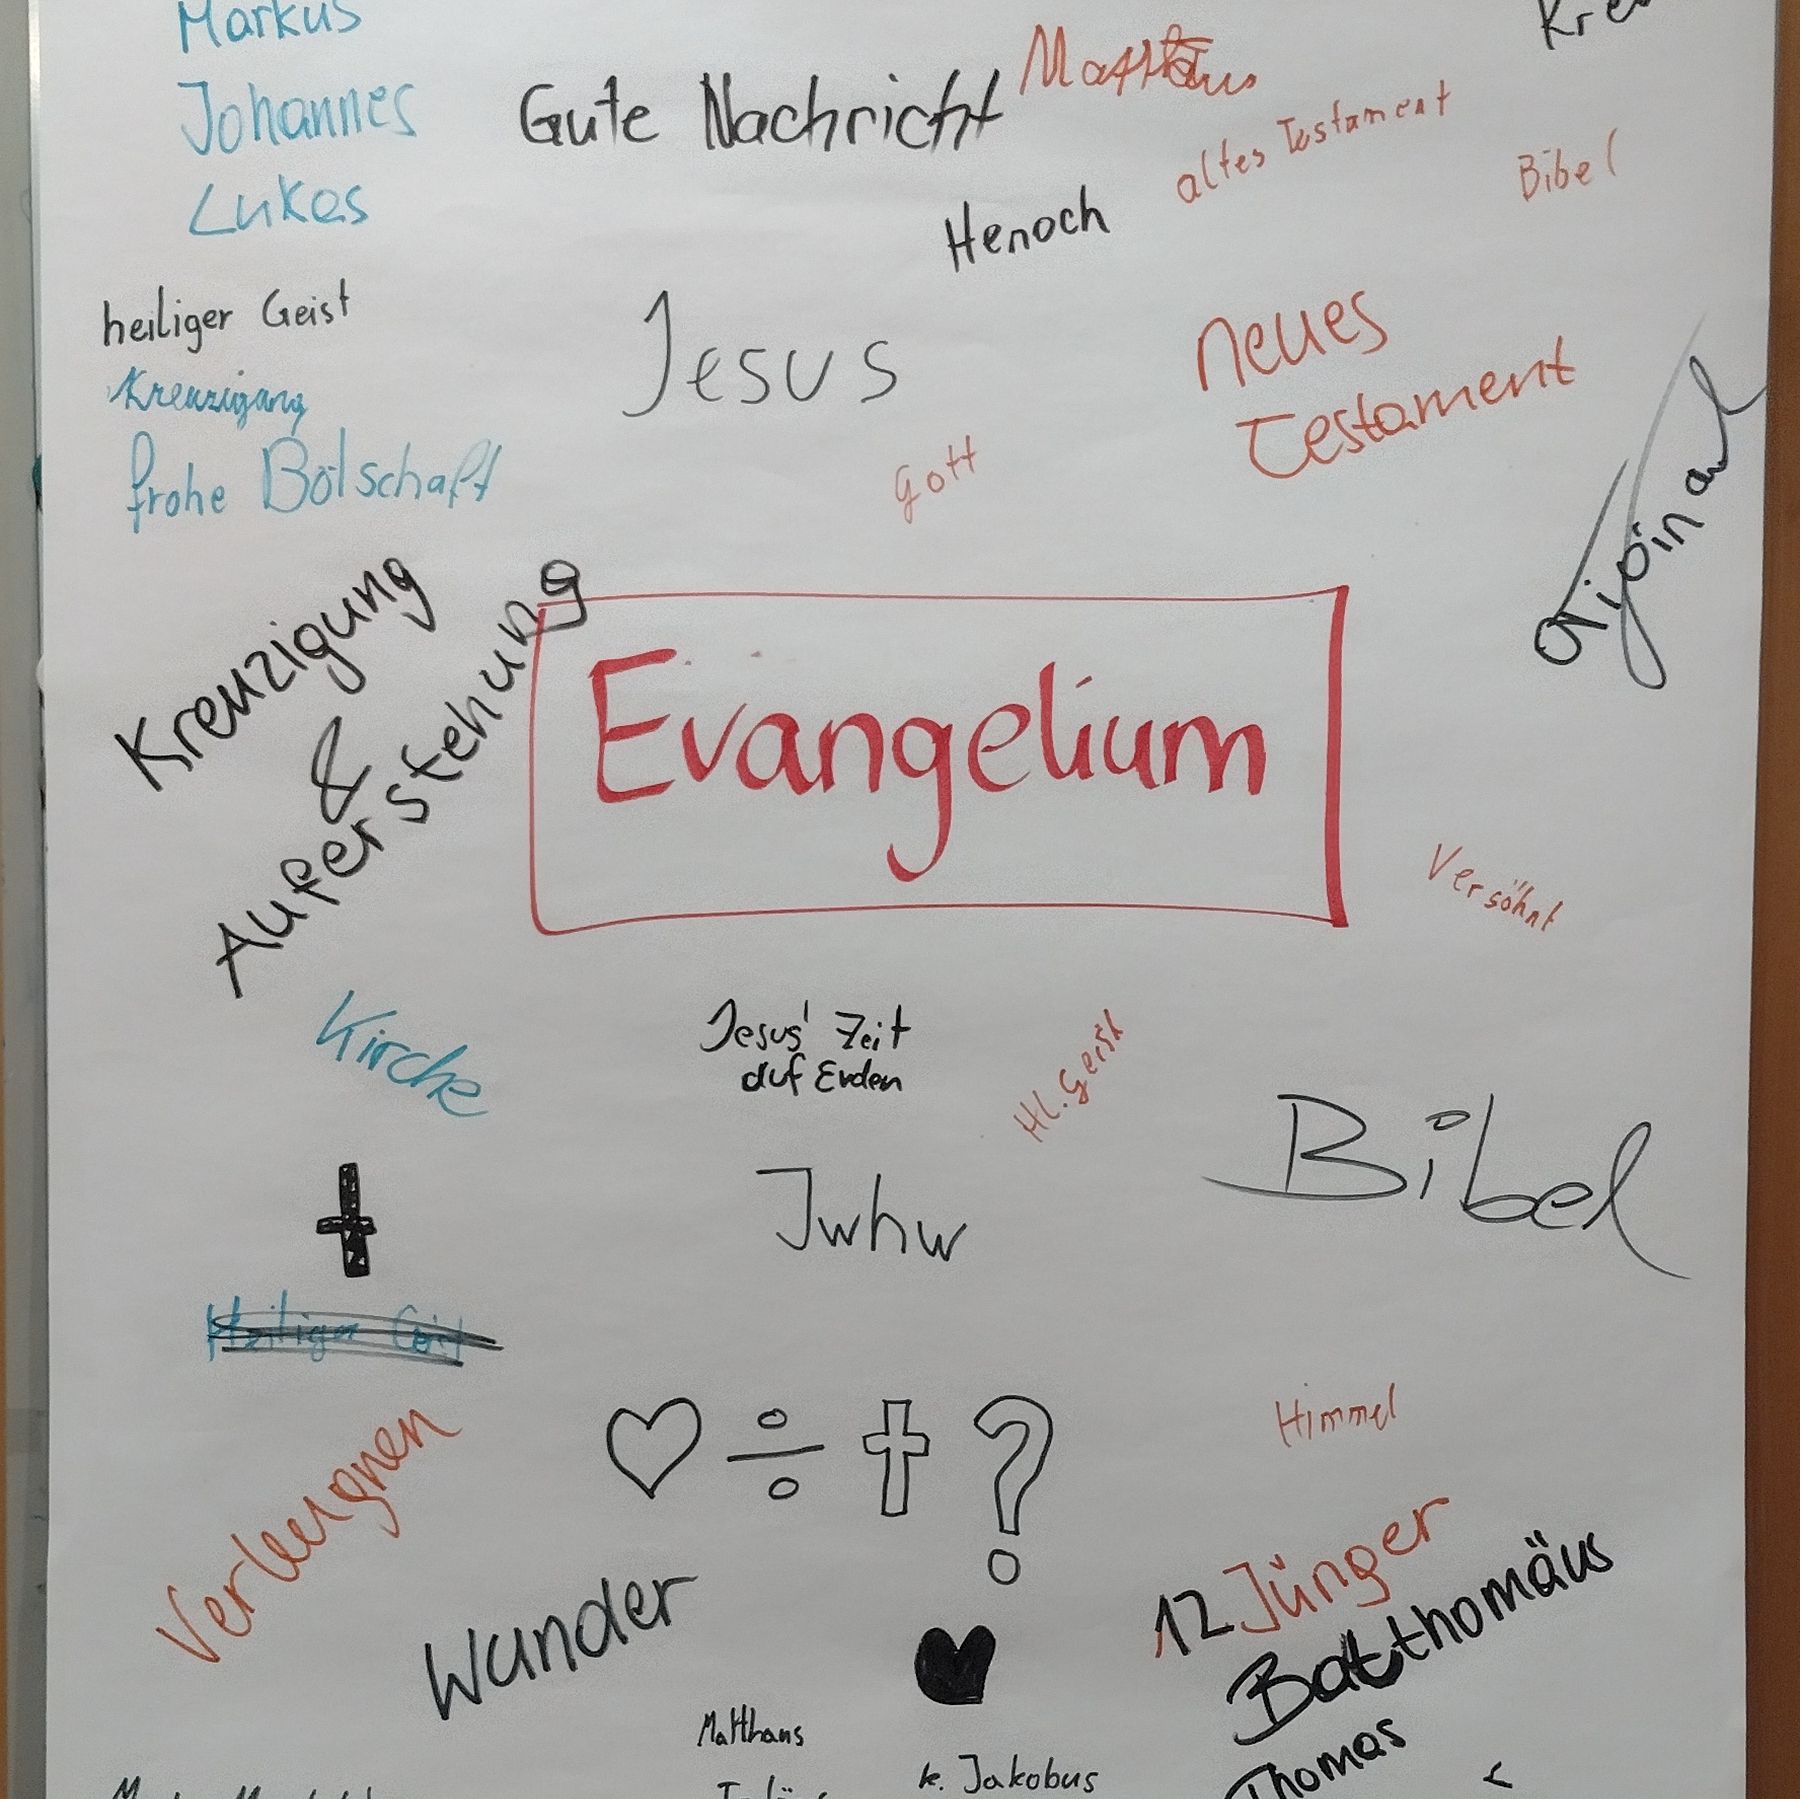 Markus
Johannes
Lukas
Gute Nachricht
Matthäus
altes Testament
Bibel
Henoch
heiliger Geist
Jesus
neues
Testament
Kreuzigung
frohe Botschaft
Gott
Kreuzigung
&
Auferstehung
Evangelium
Versöhnt
Kirche
Jesus' Zeit
auf Erden
Hl. Geist
Jwhw
Bibel
Heiliger Geist
Himmel
Verleugnen
12 Jünger
Wunder
Batthomäus
Matthäus
Thomas
k. Jakobus